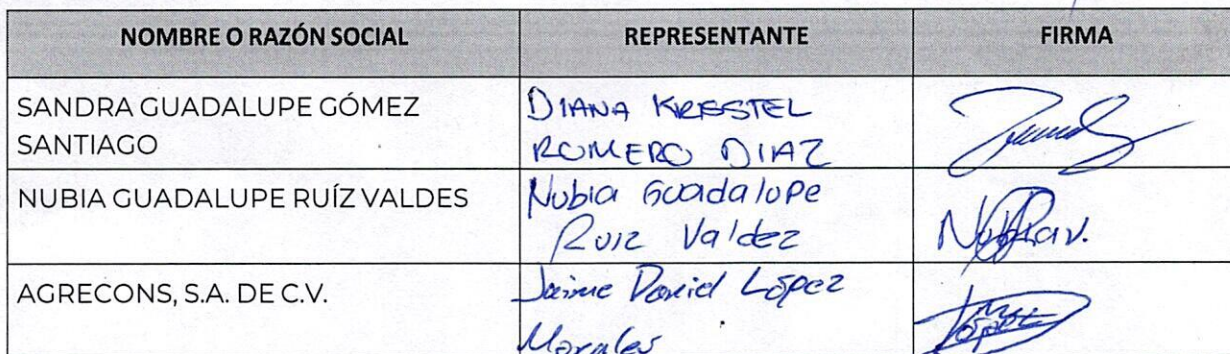 NOMBRE O RAZÓN SOCIAL REPRESENTANTE FIRMA
SANDRA GUADALUPE GÓMEZ
SANTIAGO
DIANA KRESSTEL
ROMERO DIAZ
NUBIA GUADALUPE RUÍZ VALDES
Nubia Guadalupe
Ruiz Valdez
AGRECONS, S.A. DE C.V.
Jaime David López
Morales